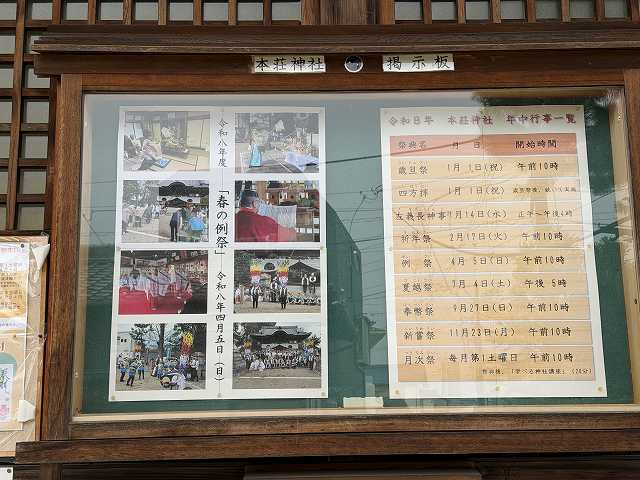 本荘神社 掲示板
令和八年度 「春の例祭」 令和八年四月五日(日)
令和8年 本荘神社 年中行事一覧
祭典名 月日 開始時間
歳旦祭 1月1日(祝) 午前10時
四方拝 1月1日(祝)
左義長神事 1月14日(水) 正午～午後4時
祈年祭 2月17日(火) 午前10時
例祭 4月5日(日) 午前10時
夏越祭 7月4日(土) 午後5時
奉幣祭 9月27日(日) 午前10時
新嘗祭 11月23日(月) 午前10時
月次祭 毎月第1土曜日 午前10時
祭典後、「学べる神社講座」(20分)